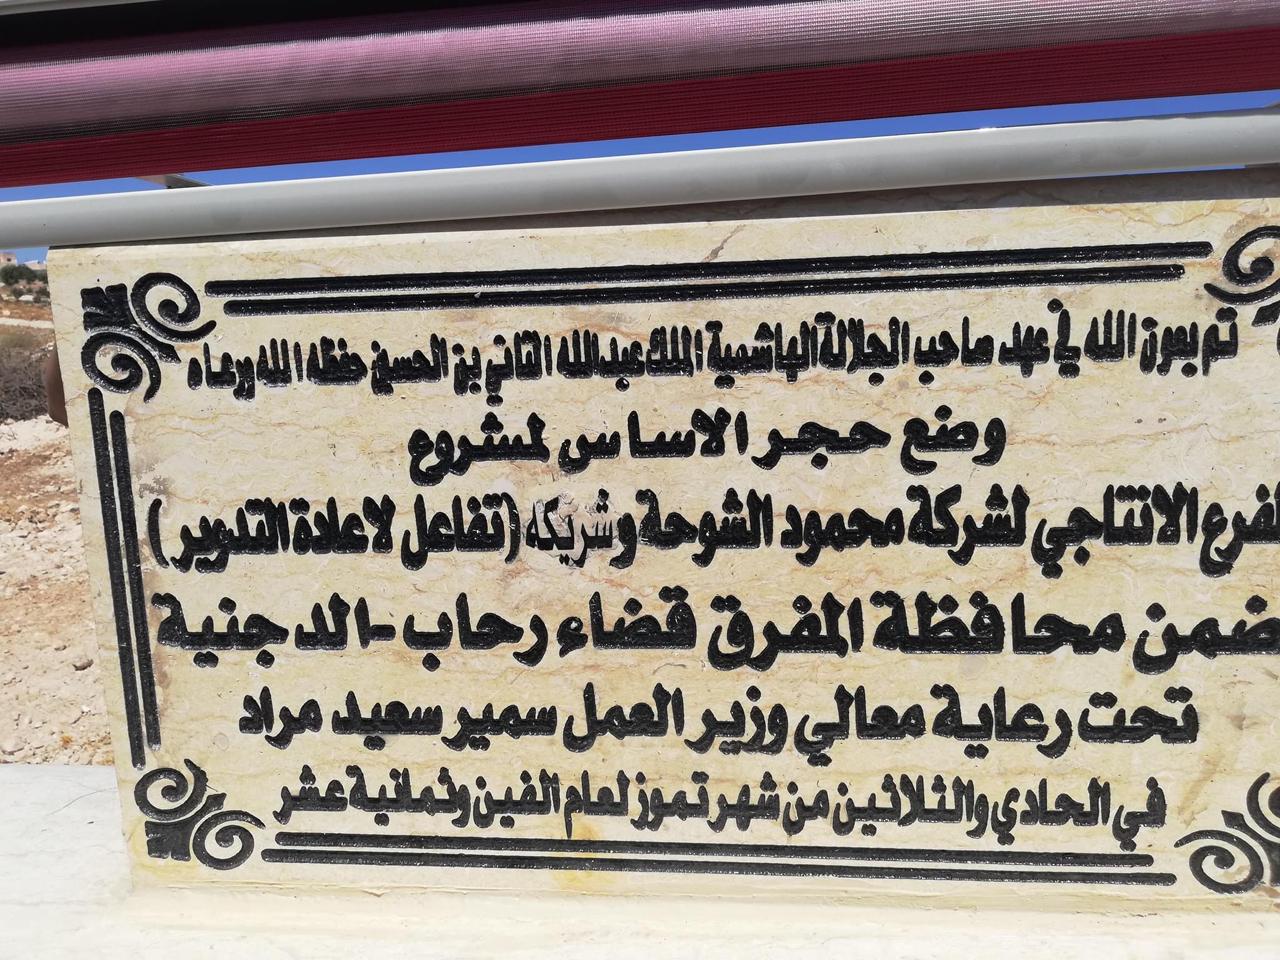 تم بعون الله في عهد صاحب الجلالة الهاشمية الملك عبدالله الثاني بن الحسين حفظه الله ورعاه
وضع حجر الاساس لمشروع
الفرع الانتاجي لشركة محمود الشوحة وشريكه (تفاعل لاعادة التدوير)
ضمن محافظة المفرق قضاء رحاب - الدجنية
تحت رعاية معالي وزير العمل سمير سعيد مراد
في الحادي والثلاثين من شهر تموز لعام الفين وثمانية عشر